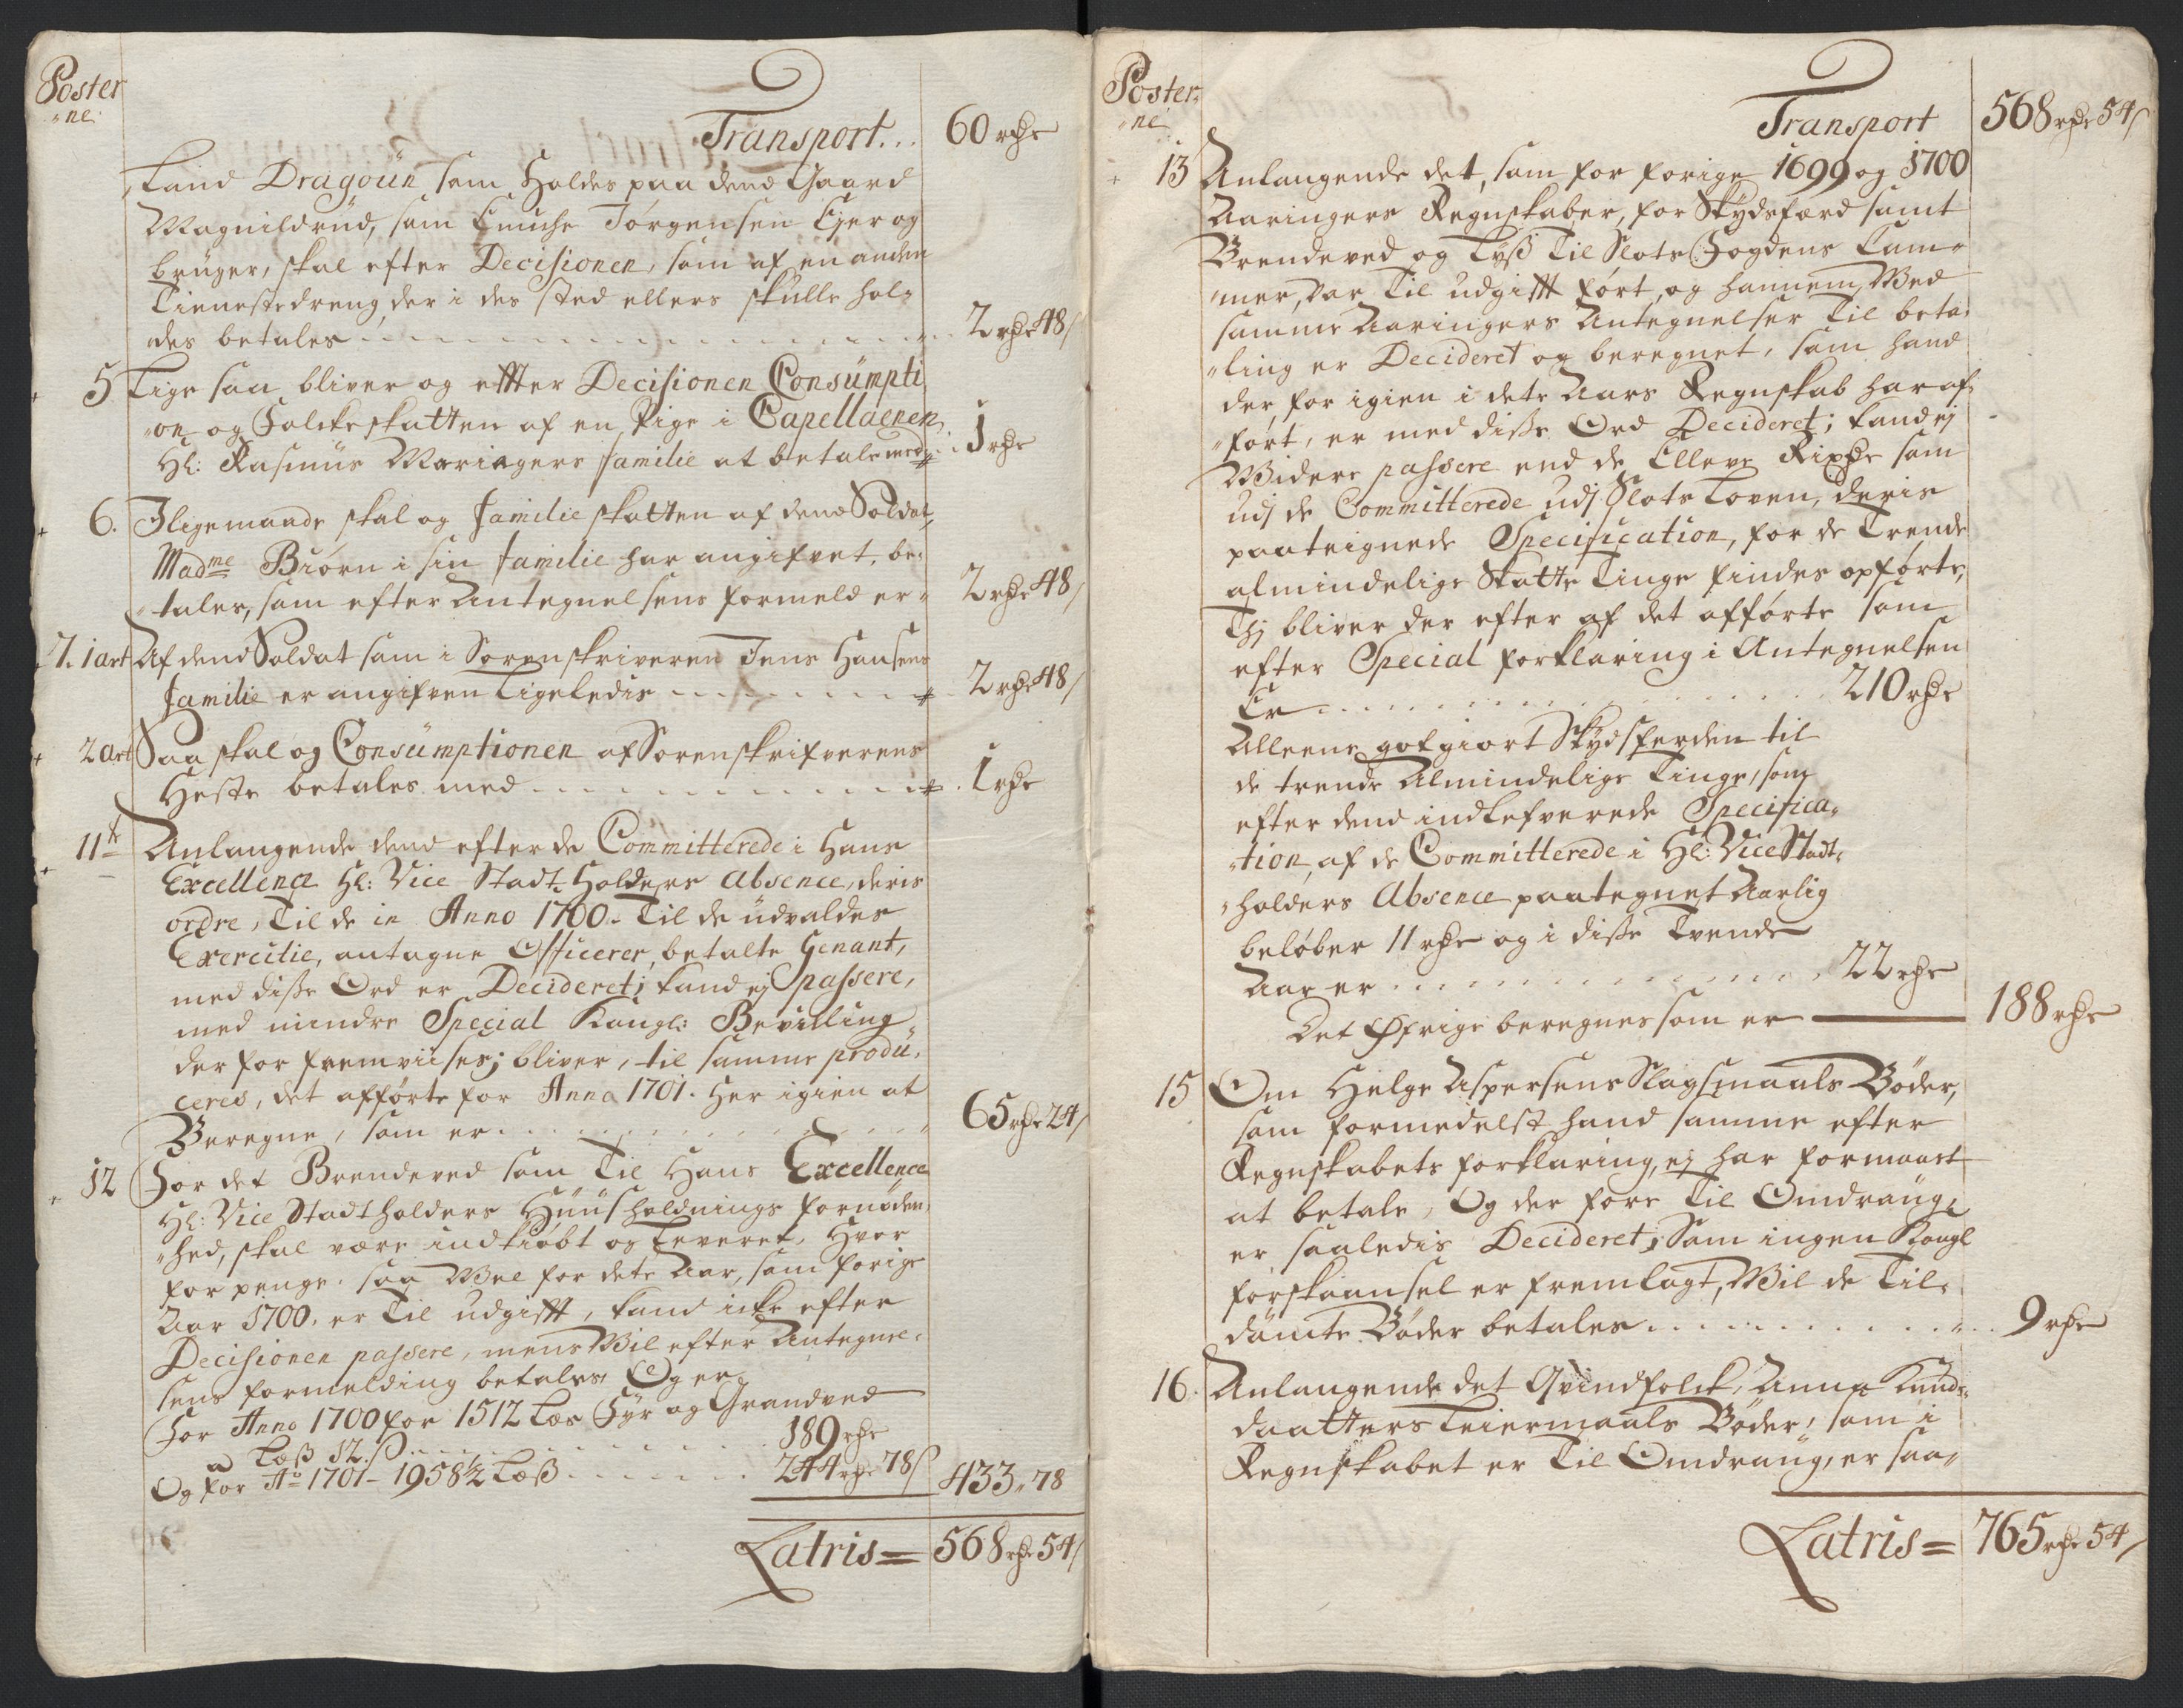 Poster
"ne
Transport... 60 rdr
Land Dragoun som Holdes paa dend Gaard
Magnildrud, som Truchs Jørgensen Ejer og
brüger, skal efter Decisionen, som af en anden
Tienestedreng der i des sted ellers skulle hol-
des betales 2 rdr 48 s
5 Lige saa bliver og effter Decisionen Consümpti
"on og Folckeskatten af en Pige i Capellaenen
Hl: Rasmus Mariagers familie at betale med 1 rdr
6. Jligemaade skal og familie skatten af dend Soldat,
Madme Biørn i sin familie har angifvet, be-
"tales, som efter Antegnelsens formeld er 2 rdr 48 s
7. 1 art Af dend Soldat som i Sorenskriveren Jens Hansens
familie er angifven Ligeledis 2 rdr 48 s
2 art Saa skal og Consümptionen af Sorenskrifverens
Heste betales med 1 rdr
11te Anlangende dend efter de Committerede i Hans
Excellence Hl: Vice Stadt-Holders Absence, deris
ordre, Til de in Anno 1700. Til de udvaldes
Exercitie, antagne Officerer, betalte Genant,
med disse Ord er Decideret; kand ej passere,
med mindre Special Kongl: Bevilling
der for fremviises; bliver, til samme produ-
ceres, det afførte for Anno 1701. her igien at
Beregne, som er 65 rdr 24 s
12 For det Brendeved som Til Hans Excellence
Hl: Vice Stadtholders Huusholdnings fornøden-
"hed, skal være indkiøbt og Leveret, hvor
for penge. saa Vel for dete Aar, som forige
Aar 1700. er Til udgifft, kand icke efter
Decisionen passere, mens Vil efter Antegnel-
sens formelding betales, Og er
For Anno 1700 for 1512 Læs Fyr og Grandved
a Læss 12 s 189 rdr
Og for Ao 1701 - 1958½ Læss 244 rdr 78 s 433 " 78
Latris = 568 rdr 54 s
Poster
"ne
Transport 568 rdr 54 s
13 Anlangende det, som for forige 1699 og 1700
Aaringers Regnskaber, for Skydsferd samt
Brendeved og Lyss Til Slots Fogdens Cam-
"mer, var Til udgifft ført, og hannem Ved
samme Aaringers Antegnelser Til beta-
"ling er Decideret og beregnet, som hand
der for igien i dete Aars Regnskab har af-
"ført, er med disse Ord Decideret; kand ej
Widere passere end de Elleve Rixdr som
udj de Committerede udj Slots Loven, deris
paateignede Specification, for de Trende
almindelige Skatte Tinge findes opførte,
Thj bliver der efter af det afførte som
efter Special forklaring i Antegnelsen
Er 210 rdr
Alleene godgiort Skydsferden til
de trende Almindelige Tinge, som
efter dend indlefverede Specifica-
"tion, af de Committerede i Hl: Vice Stadt-
"holders Absence paategnet Aarlig
beløber 11 rdr og i disse Tvende
Aar er 22 rdr
Det Øfrige beregnes som er 188 rdr
15 Om Helge Aspersens Slagsmaals Bøder,
som formedelst hand samme efter
Regnskabets forklaring, ej har formaaet
at betale, Og der fore Til Omdrang,
er saaledis Decideret; Som ingen Kongl
forskaansel er fremlagt, Vil de Til-
dømte Bøder betales 9 rdr
16. Anlangende det Qvindfolck, Anna Knuds-
daatters Leiermaals Bøder, som i
Regnskabet er Til Omdrang, er saa-
Latris = 765 rdr 54 s